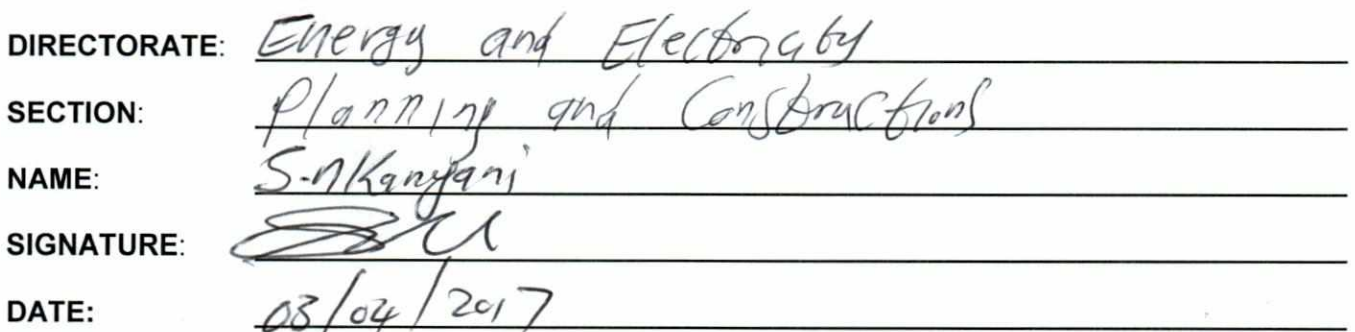 DIRECTORATE: Energy and Electricity
SECTION: Planning and Constructions
NAME: S.n Kanyani
SIGNATURE:
DATE: 03/04/2017